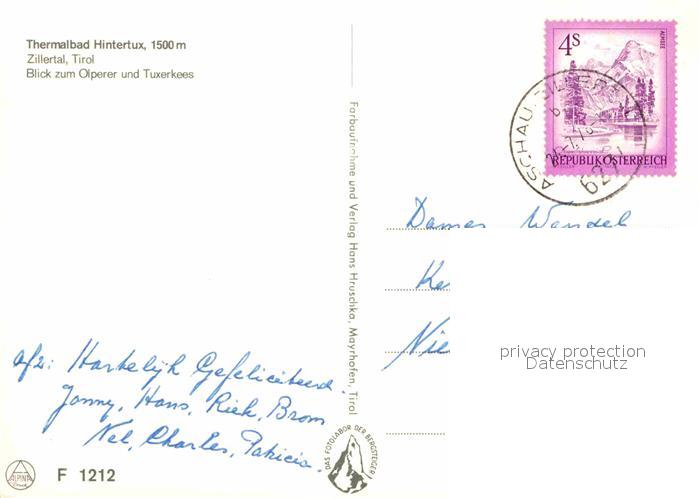 Thermalbad Hintertux, 1500 m
Zillertal, Tirol
Blick zum Olperer und Tuxerkees
4s
ALMSEE
REPUBLIK ÖSTERREICH
ASCHAU, ZILLERT
Farbaufnahme und Verlag Hans Hruschka, Mayrhofen, Tirol
Dames Wandel
Ke
Nie
privacy protection
Datenschutz
afz: Hartelijk Gefeliciteerd.
Jonny, Hans, Riek, Brom
Nel, Charles, Patricia.
DAS FOTOLABOR DER BERGSTEIGER
ALPINA
F 1212